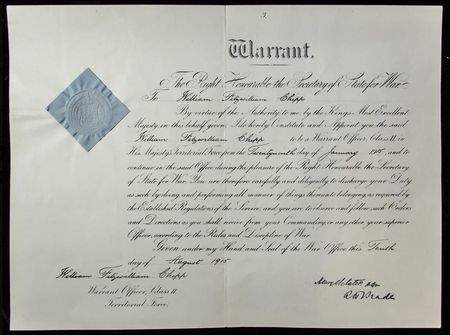 3.
Warrant.
The Right Honourable the Secretary of State for War
To William Fitzwilliam Chipp
By virtue of the Authority to me by the King's Most Excellent
Majesty in this behalf given I do hereby Constitute and Appoint you the said
William Fitzwilliam Chipp to be a Warrant Officer, Class II. in
His Majesty's Territorial Force from the Twentyninth day of January 1915, and to
continue in the said Office during the pleasure of the Right Honourable the Secretary
of State for War. You are therefore carefully and diligently to discharge your Duty
as such by doing and performing all manner of things thereunto belonging, as required by
the Established Regulations of the Service, and you are to observe and follow such Orders
and Directions as you shall receive from your Commanding, or any other, your superior
Officer, according to the Rules and Discipline of War.
Given under my Hand and Seal of the War Office this Tenth
day of August 1915
William Fitzwilliam Chipp
Warrant Officer, Class II.
Territorial Force.